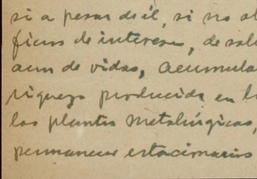 si a pesar de él, si no al
ficios de intereses, de salu
aun de vidas, acumula
riqueza producida en l
las plantas metalúrgicas,
permanece estacionarios